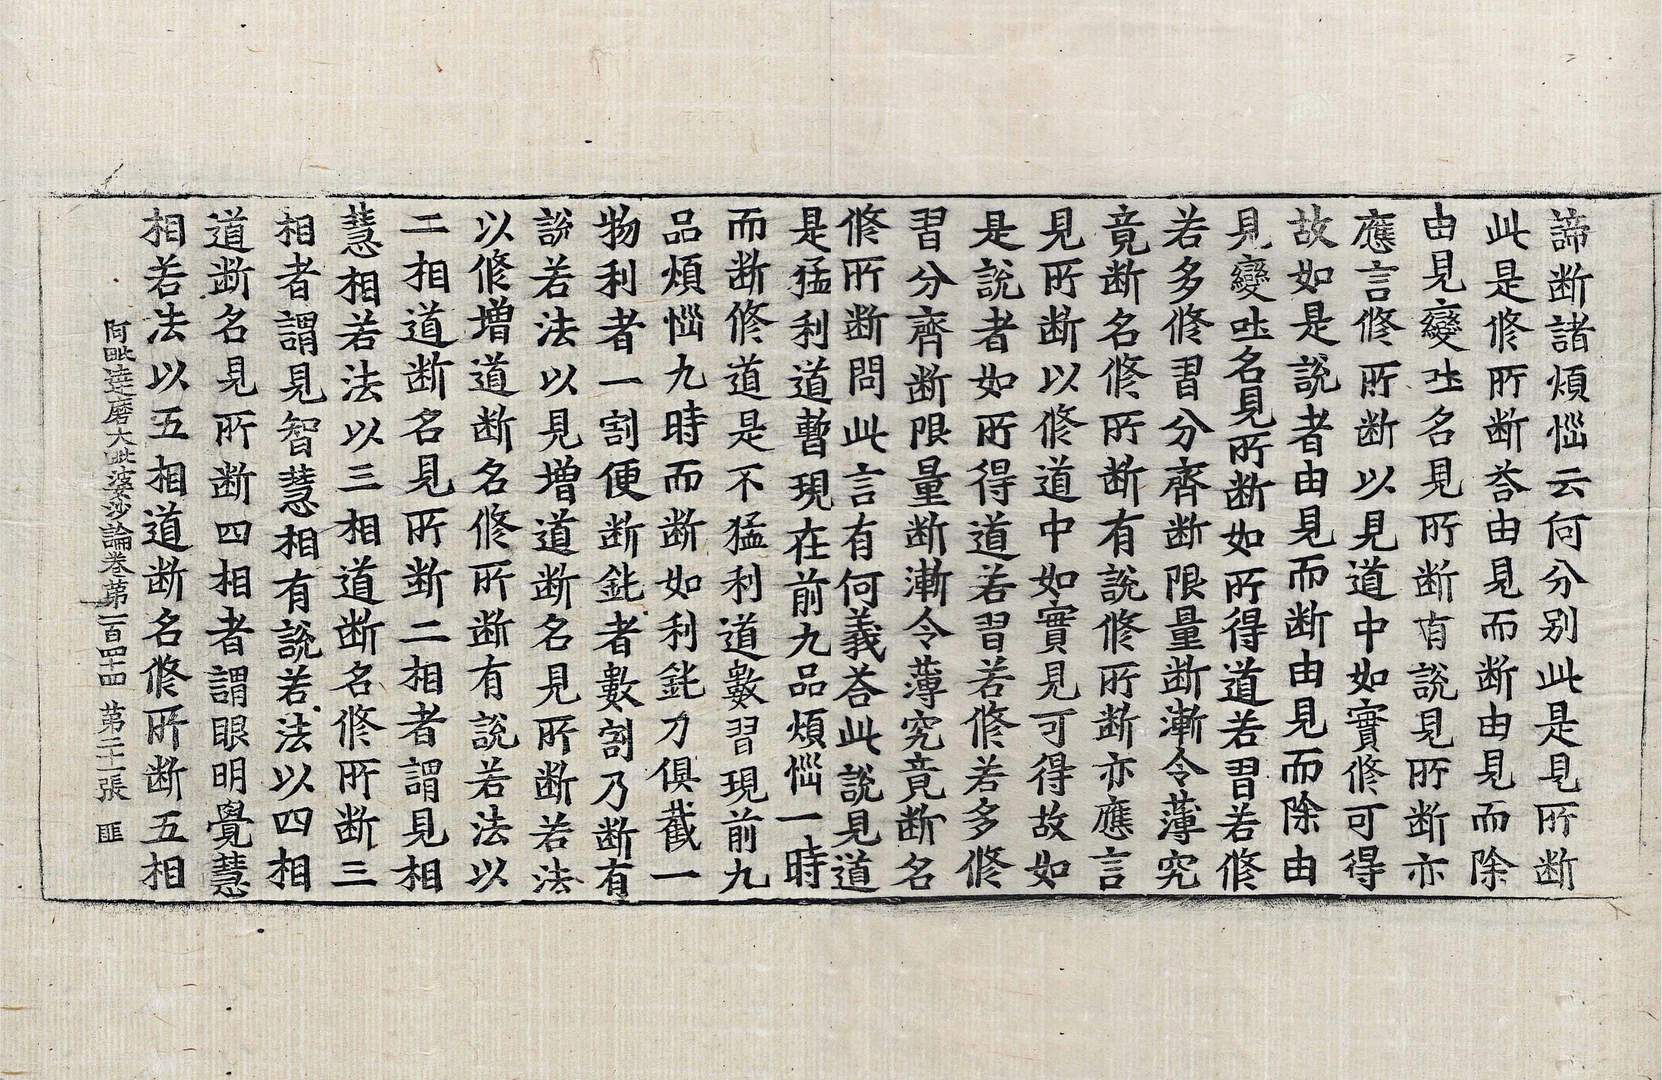 諦断諸煩惱云何分別此是見所断
此是修所断荅由見而断由見而除
由見變吐名見所断有說見所断亦
應言修所断以見道中如實修可得
故如是說者由見而断由見而除由
見變吐名見所断如所得道若習若修
若多修習分齊断限量断漸令薄究
竟断名修所断有說修所断亦應言
見所断以修道中如實見可得故如
是說者如所得道若習若修若多修
習分齊断限量断漸令薄究竟断名
修所断問此言有何義荅此說見道
是猛利道暫現在前九品煩惱一時
而断修道是不猛利道數習現前九
品煩惱九時而断如利鈍刀俱截一
物利者一割便断鈍者數割乃断有
說若法以見增道断名見所断若法
以修增道断名修所断有說若法以
二相道断名見所断二相者謂見相
慧相若法以三相道断名修所断三
相者謂見智慧相有說若法以四相
道断名見所断四相者謂眼明覺慧
相若法以五相道断名修所断五相
阿毗達磨大毗婆沙論卷第一百四十四 第二十一張 匪